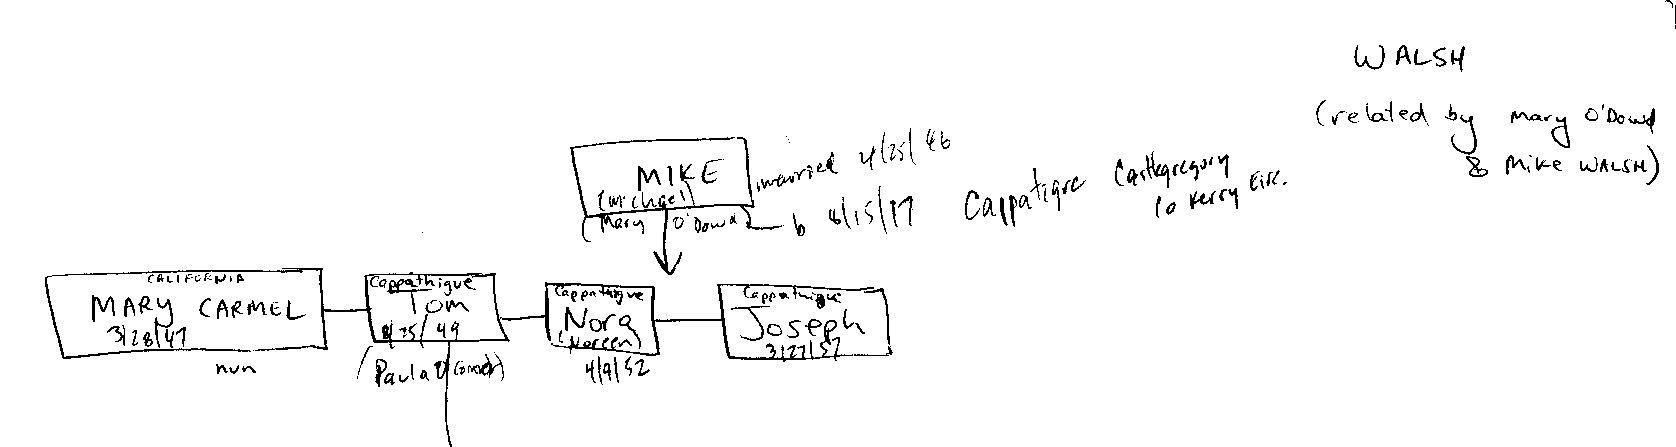 WALSH
(related by Mary O'Dowd
& Mike WALSH)
MIKE
(Michael)
married 4/25/46
(Mary O'Dowd
b 8/15/17 Cappatigue Castlegregory
Co Kerry Eire.
CALIFORNIA
MARY CARMEL
3/28/47
nun
Cappathigue
Tom
/49
(Paula
Cappathigue
Nora
(Noreen)
4/9/52
Cappathigue
Joseph
3/27/57